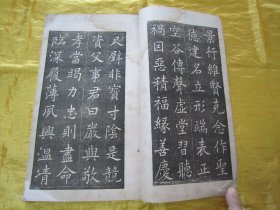 景行維賢克念作聖
德建名立形端表正
空谷傳聲虛堂習聽
禍因惡積福緣善慶
尺璧非寶寸陰是競
資父事君曰嚴與敬
孝當竭力忠則盡命
臨深履薄夙興溫凊